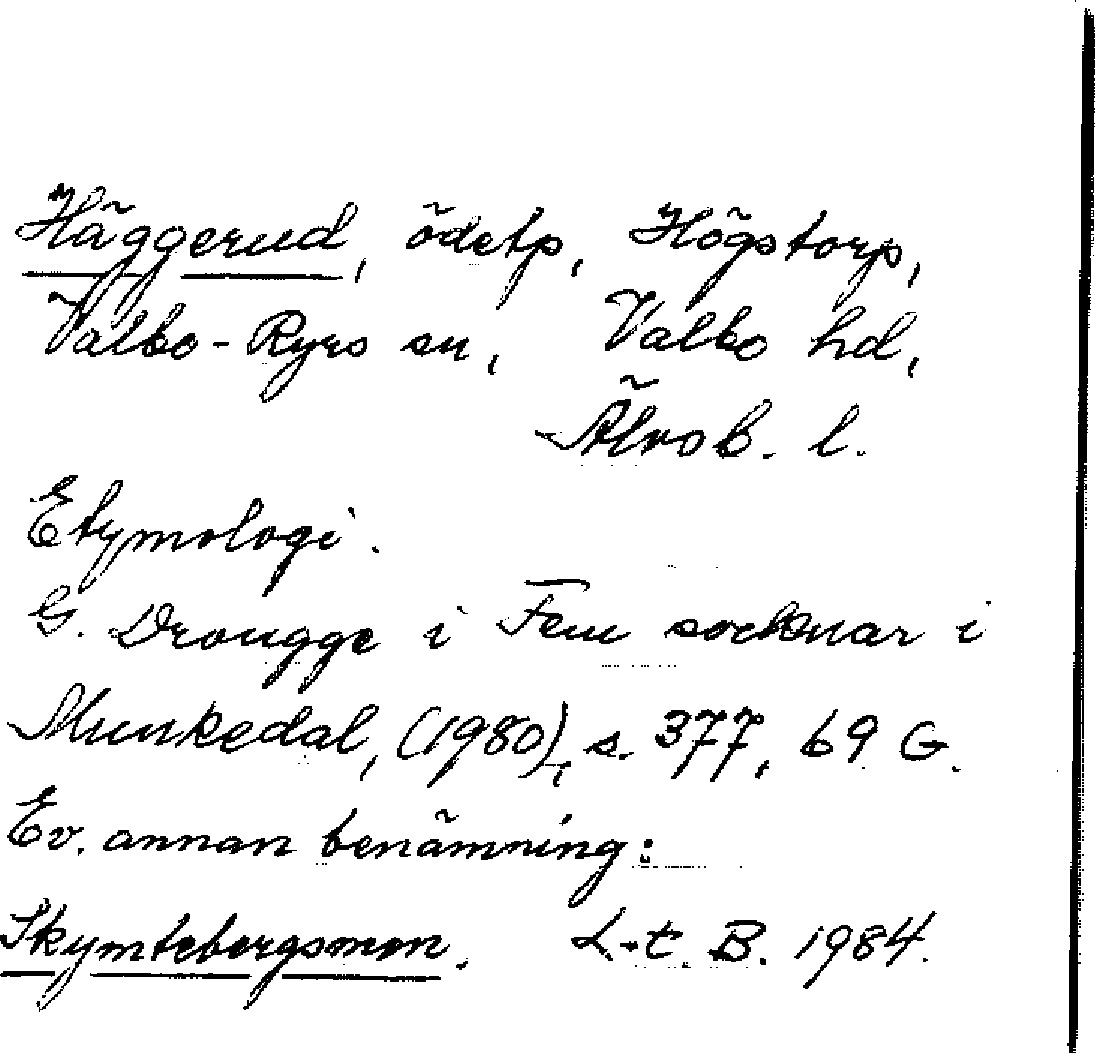 Häggerud, ödetp, Högstorp,
Valbo-Ryrs sn, Valbo hd,
Älvsb. l.
Etymologi.
G. Drougge i Fem socknar i
Munkedal, (1980), s. 377, 69 G.
Ev. annan benämning:
Skymtebergsmon. L-t B. 1984.